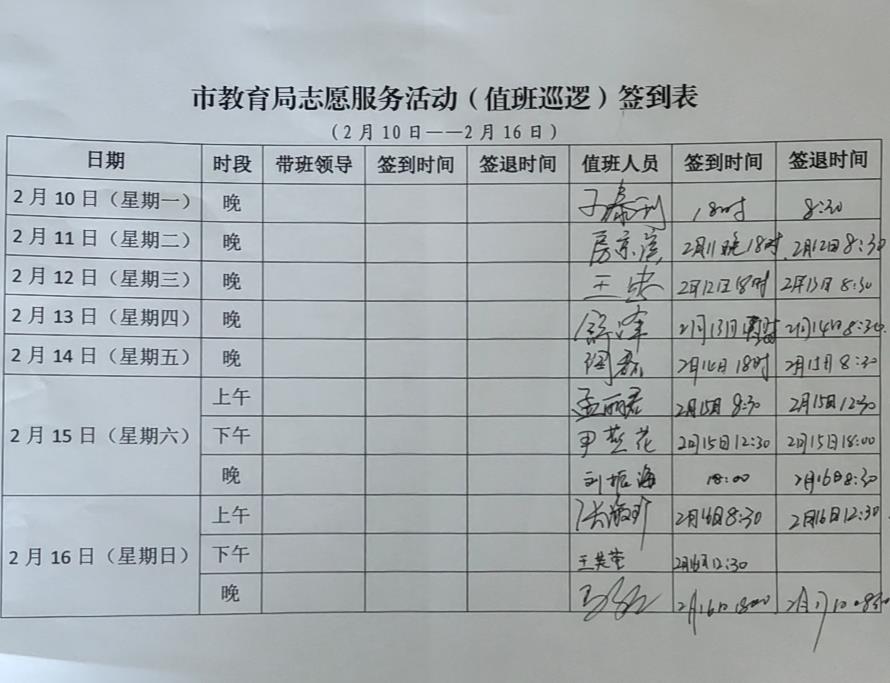 市教育局志愿服务活动（值班巡逻）签到表
（2月10日——2月16日）
日期 时段 带班领导 签到时间 签退时间 值班人员 签到时间 签退时间
2月10日（星期一） 晚 18时 8:30
2月11日（星期二） 晚 房京滨 2月11晚18时 2月12日8:30
2月12日（星期三） 晚 2月12日18时 2月13日 8:30
2月13日（星期四） 晚 2月13日 2月14日8:30
2月14日（星期五） 晚 2月14日18时 2月15日 8:30
2月15日（星期六） 上午 孟丽君 2月15日 8:30 2月15日12:30
下午 甲燕花 2月15日12:30 2月15日18:00
晚 刘振海 18:00 2月16日8:30
2月16日（星期日） 上午 2月16日8:30 2月16日12:30
下午 2月16日12:30
晚 2月16日18:00